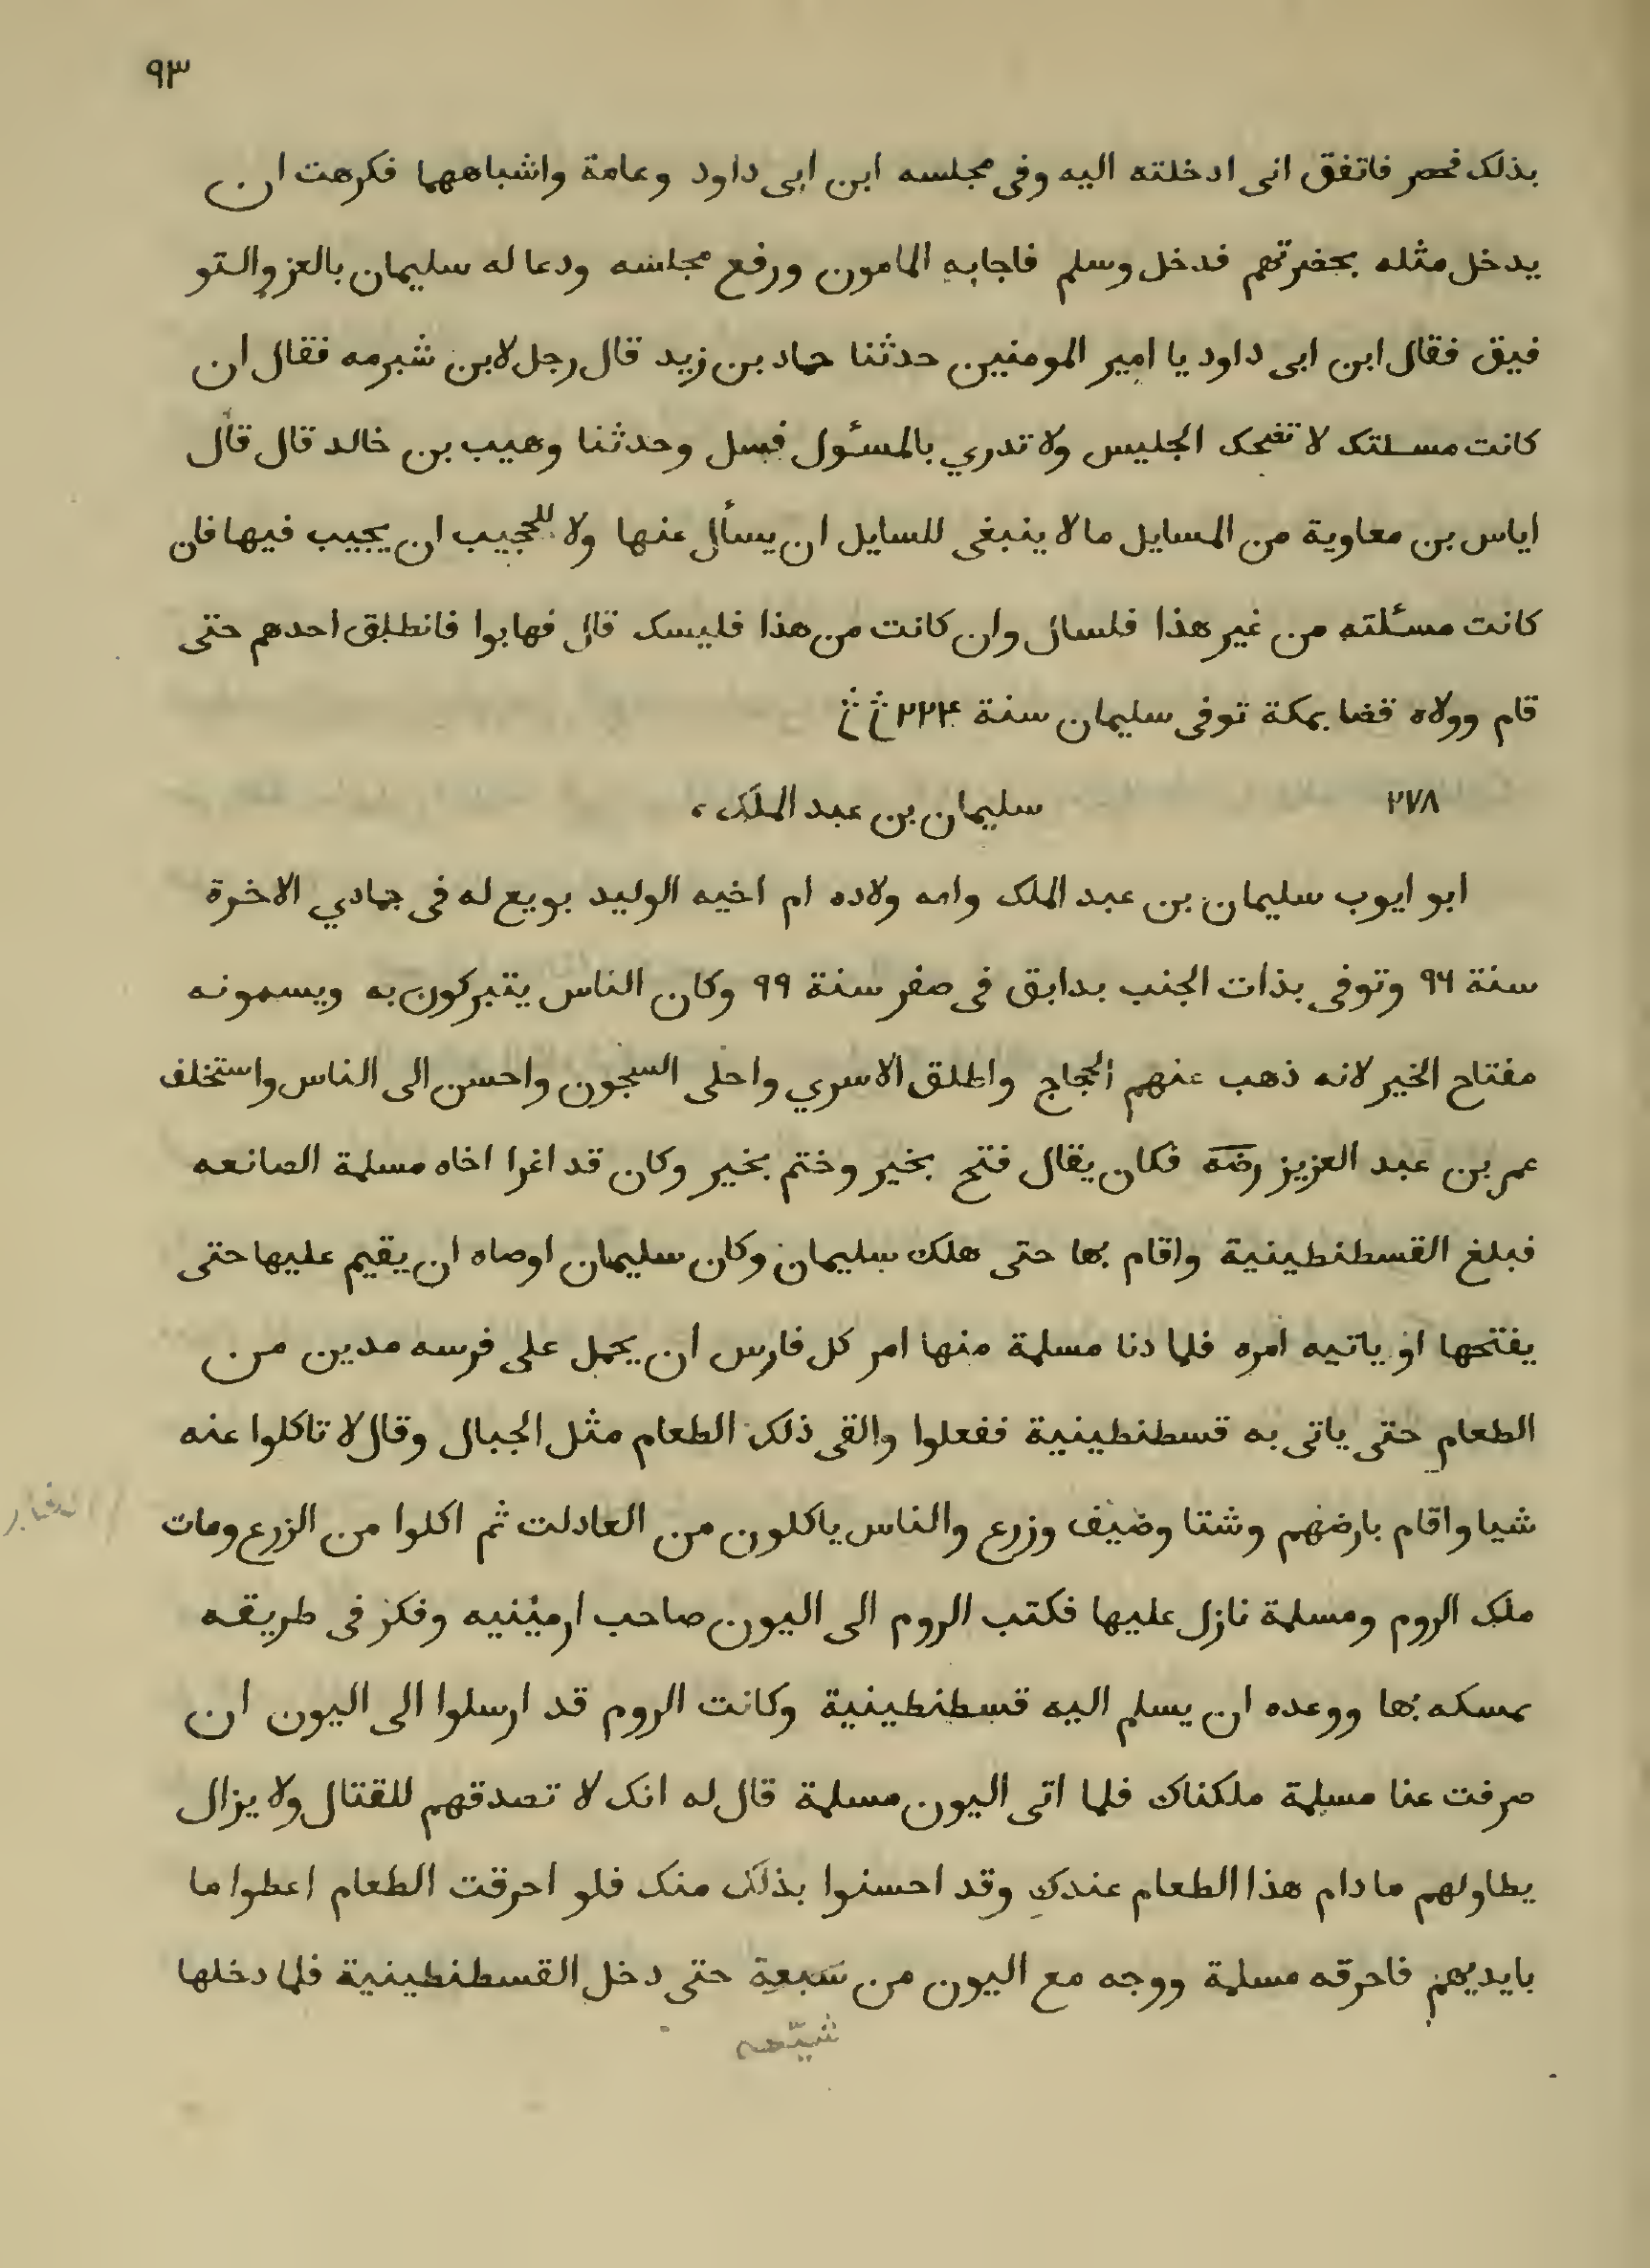 ٩٣
بذلک فحصر فاتفق انى ادخلته اليه وفى مجلسه ابن ابى داود وعامة واشباههما فكرهت ان
يدخل مثله بحضرتهم فدخل وسلم فاجابه المامون ورفع مجلسه ودعا له سليمان بالعز والتو
فيق فقال ابن ابى داود يا امير المومنين حدثنا حماد بن زيد قال رجل لابن شبرمه فقال ان
كانت مسئلتک لا تضحک الجليس ولا تدري بالمسئول فسل وحدثنا وهيب بن خالد قال قال
اياس بن معاوية من المسايل ما لا ينبغى للسايل ان يسأل عنها ولا للمجيب ان يجيب فيها فان
كانت مسئلته من غير هذا فلسال وان كانت من هذا فليسک قال فهابوا فانطلق احدهم حتى
قام وولاه قضا بمكة توفى سليمان سنة ٢٢۴
٢٧٨ سليمان بن عبد الملک ،
ابو ايوب سليمان بن عبد الملک وامه ولاده ام اخيه الوليد بويع له فى جمادي الاخرة
سنة ٩٦ وتوفى بذات الجنب بدابق فى صفر سنة ٩٩ وكان الناس يتبركون به ويسمونه
مفتاح الخير لانه ذهب عنهم الحجاج واطلق الاسري واحلى السجون واحسن الى الناس واستخلف
عمر بن عبد العزيز رضه فكان يقال فتح بخير وختم بخير وكان قد اغرا اخاه مسلمة الصانعه
فبلغ القسطنطينية واقام بها حتى هلک سليمان وكان سليمان اوصاه ان يقيم عليها حتى
يفتحها او ياتيه امره فلما دنا مسلمة منها امر كل فارس ان يحمل على فرسه مدين من
الطعام حتى ياتى به قسطنطينية ففعلوا والقى ذلک الطعام مثل الجبال وقال لا تاكلوا عنه
شيا واقام بارضهم وشتا وضيف وزرع والناس ياكلون من العادلت ثم اكلوا من الزرع ومات
ملک الروم ومسلمة نازل عليها فكتب الروم الى اليون صاحب ارمينيه وفكز فى طريقه
بمسكه بها ووعده ان يسلم اليه قسطنطينية وكانت الروم قد ارسلوا الى اليون ان
صرفت عنا مسلمة ملكناک فلما اتى اليون مسلمة قال له انک لا تصدقهم للقتال ولا يزال
يطاولهم ما دام هذا الطعام عندک وقد احسنوا بذلک منک فلو احرقت الطعام اعطوا ما
بايديهم فاحرقه مسلمة ووجه مع اليون من سَبعة حتى دخل القسطنطينية فلما دخلها
شيّعه